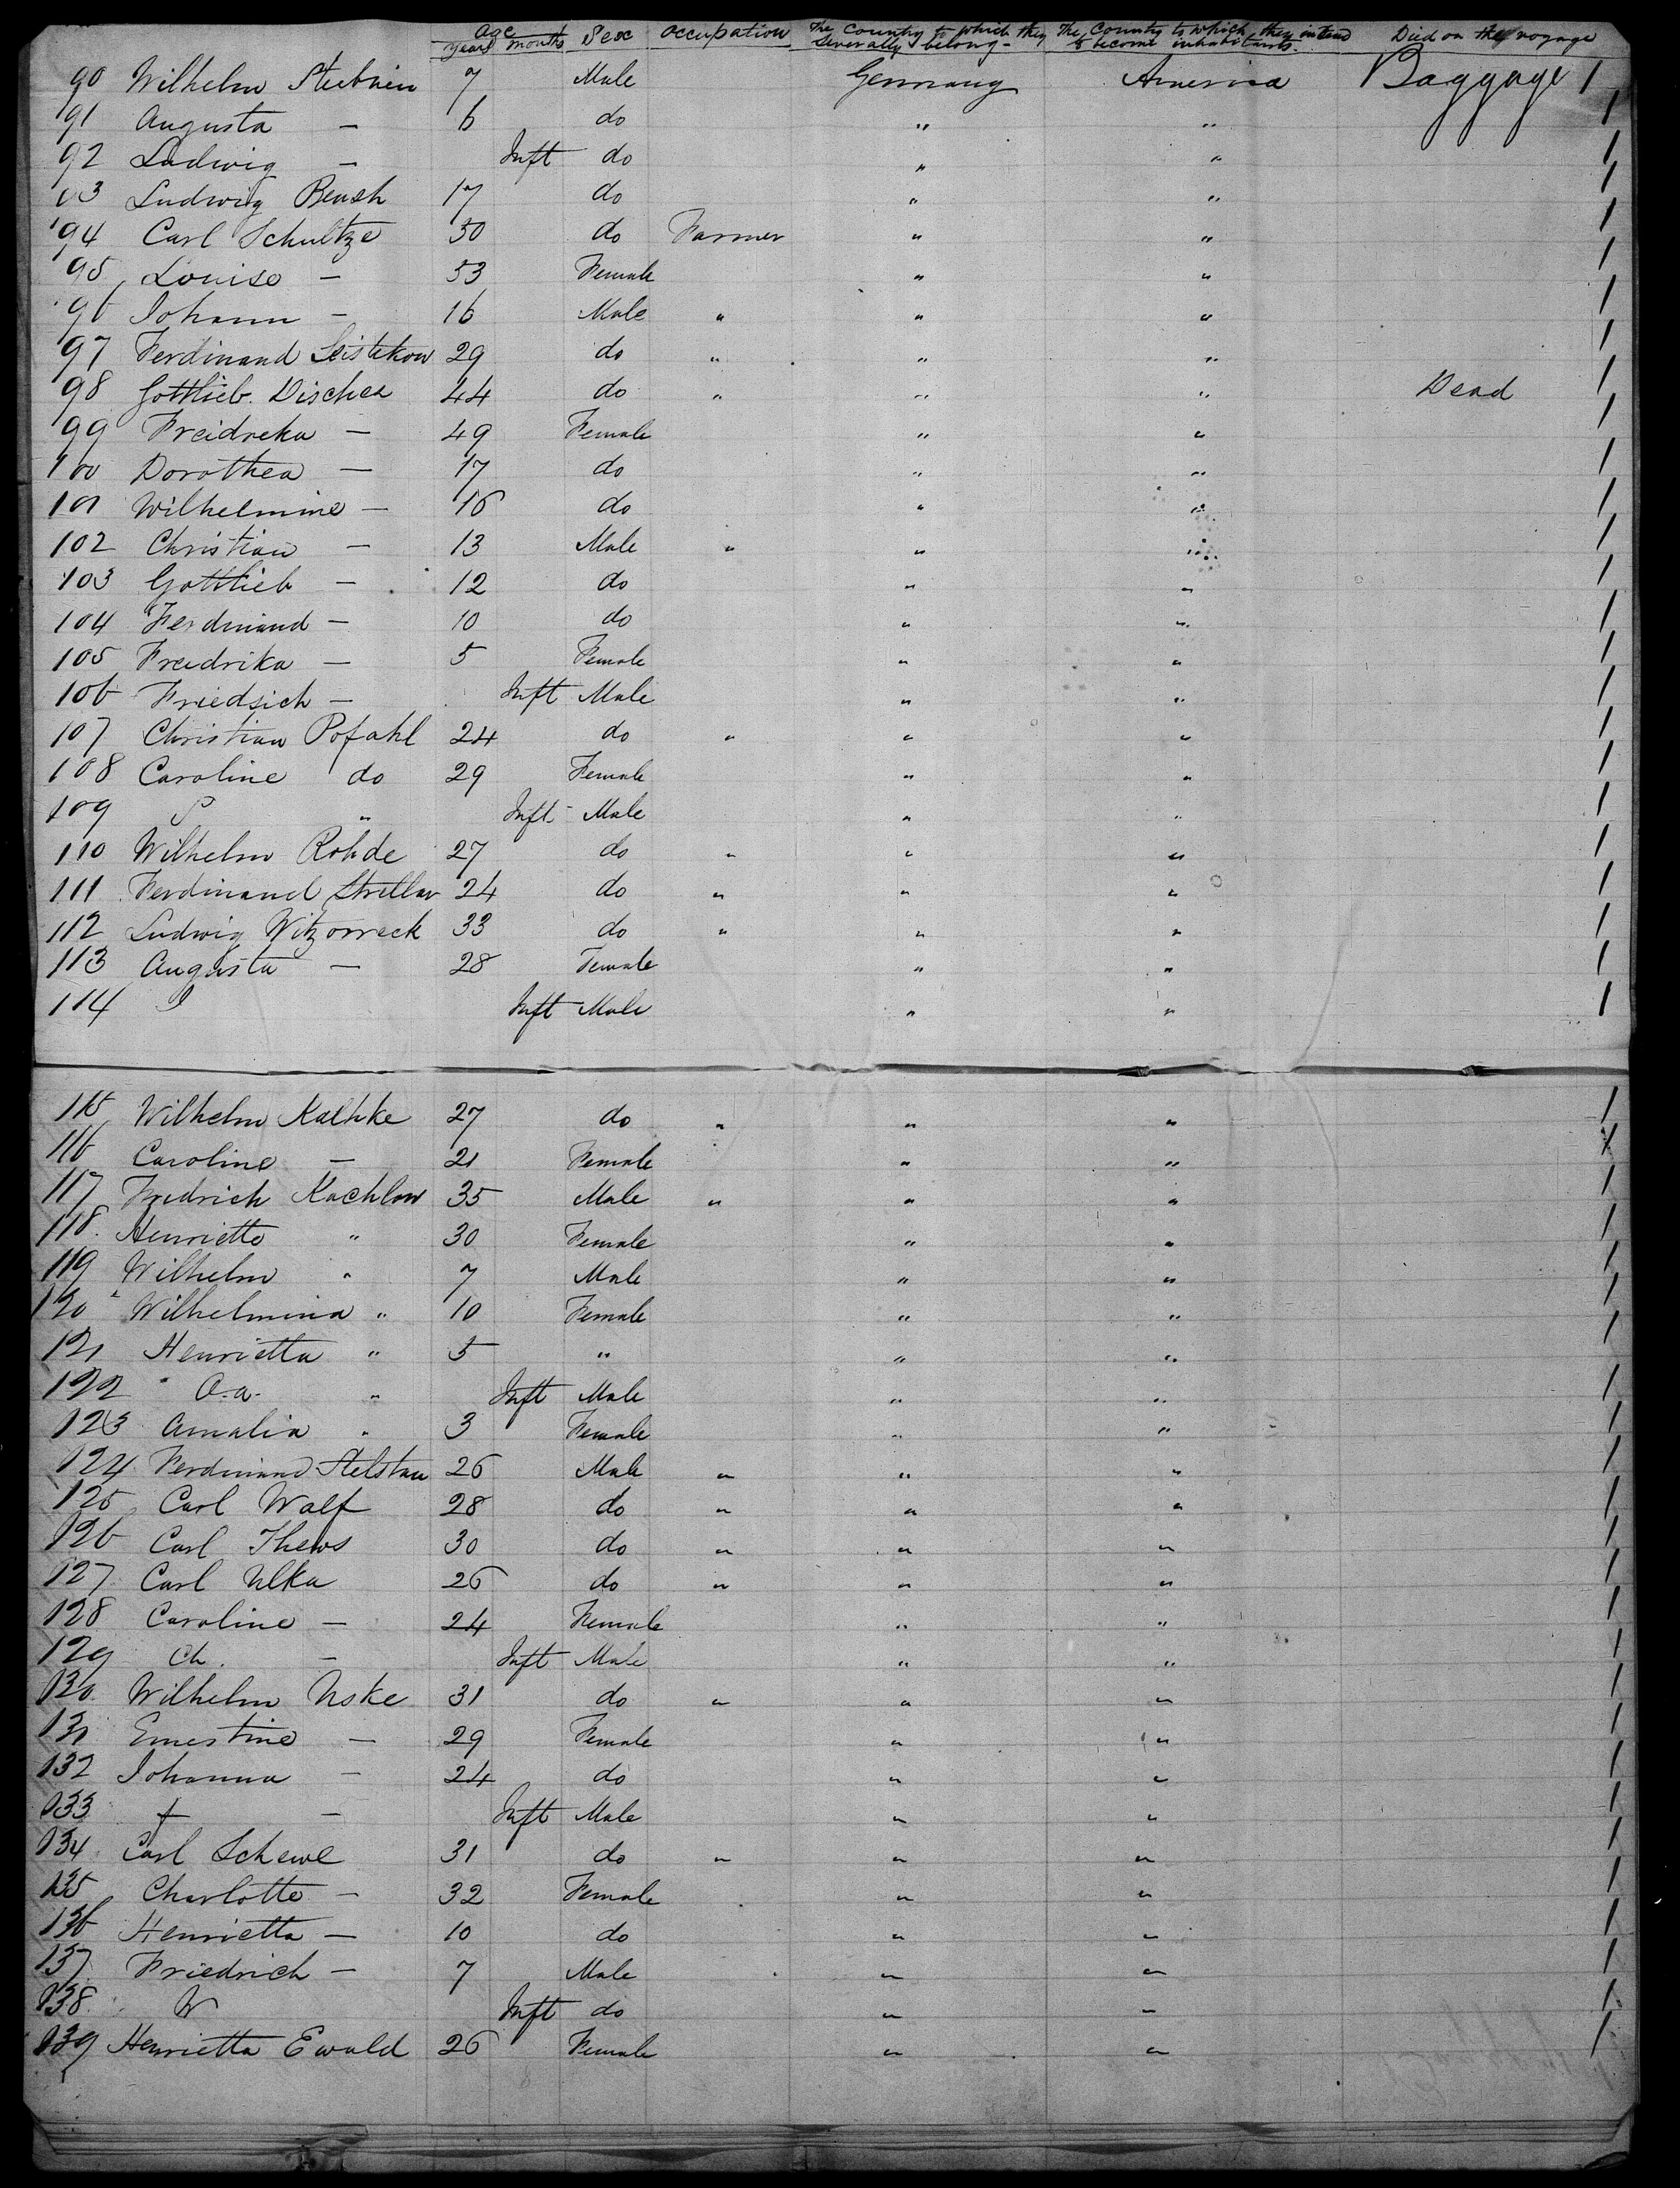 Age Sex Occupation The Country to which they severally belong - The Country to which they intend to become inhabitants. Died on the voyage
Years Months
90 Wilhelm 7 Male Germany America Baggage 1
91 Augusta — 6 do " " 1
92 Ludwig — Inft do " " 1
93 Ludwig Bensh 17 do " " 1
94 Carl Schultze 50 do Farmer " " 1
95 Louise — 53 Female " " 1
96 Johann — 16 Male " " " 1
97 Ferdinand Leistekow 29 do " " " 1
98 Gottlieb Discher 44 do " " " Dead 1
99 Freidreka — 49 Female " " 1
100 Dorothea — 17 do " " 1
101 Wilhelmine — 16 do " " 1
102 Christian — 13 Male " " " 1
103 Gottlieb — 12 do " " 1
104 Ferdinand — 10 do " " 1
105 Freidrika — 5 Female " " 1
106 Friedrich — Inft Male " " 1
107 Christian Pofahl 24 do " " " 1
108 Caroline do 29 Female " " 1
109 P " Inft Male " " 1
110 Wilhelm Rohde 27 do " " " 1
111 Ferdinand 24 do " " " 1
112 Ludwig Witzorreck 33 do " " " 1
113 Augusta — 28 Female " " 1
114 I Inft Male " " 1
115 Wilhelm Kathke 27 do " " " 1
116 Caroline — 21 Female " " 1
117 Fredrich Kachlow 35 Male " " " 1
118 Henriette " 30 Female " " 1
119 Wilhelm " 7 Male " " 1
120 Wilhelmina " 10 Female " " 1
121 Henrietta " 5 " " " 1
122 A.a. " Inft Male " " 1
123 Amalia " 3 Female " " 1
124 Ferdinand 26 Male " " " 1
125 Carl Walf 28 do " " " 1
126 Carl Thews 30 do " " " 1
127 Carl Ulka 26 do " " " 1
128 Caroline — 24 Female " " 1
129 Ch. — Inft Male " " 1
130 Wilhelm Uske 31 do " " " 1
131 Ernestine — 29 Female " " 1
132 Johanna — 24 do " " 1
133 f — Inft Male " " 1
134 Carl Schewe 31 do " " " 1
135 Charlotte — 32 Female " " 1
136 Henrietta — 10 do " " 1
137 Friedrich — 7 Male " " 1
138 W Inft do " " 1
139 Henrietta Ewald 26 Female " " 1